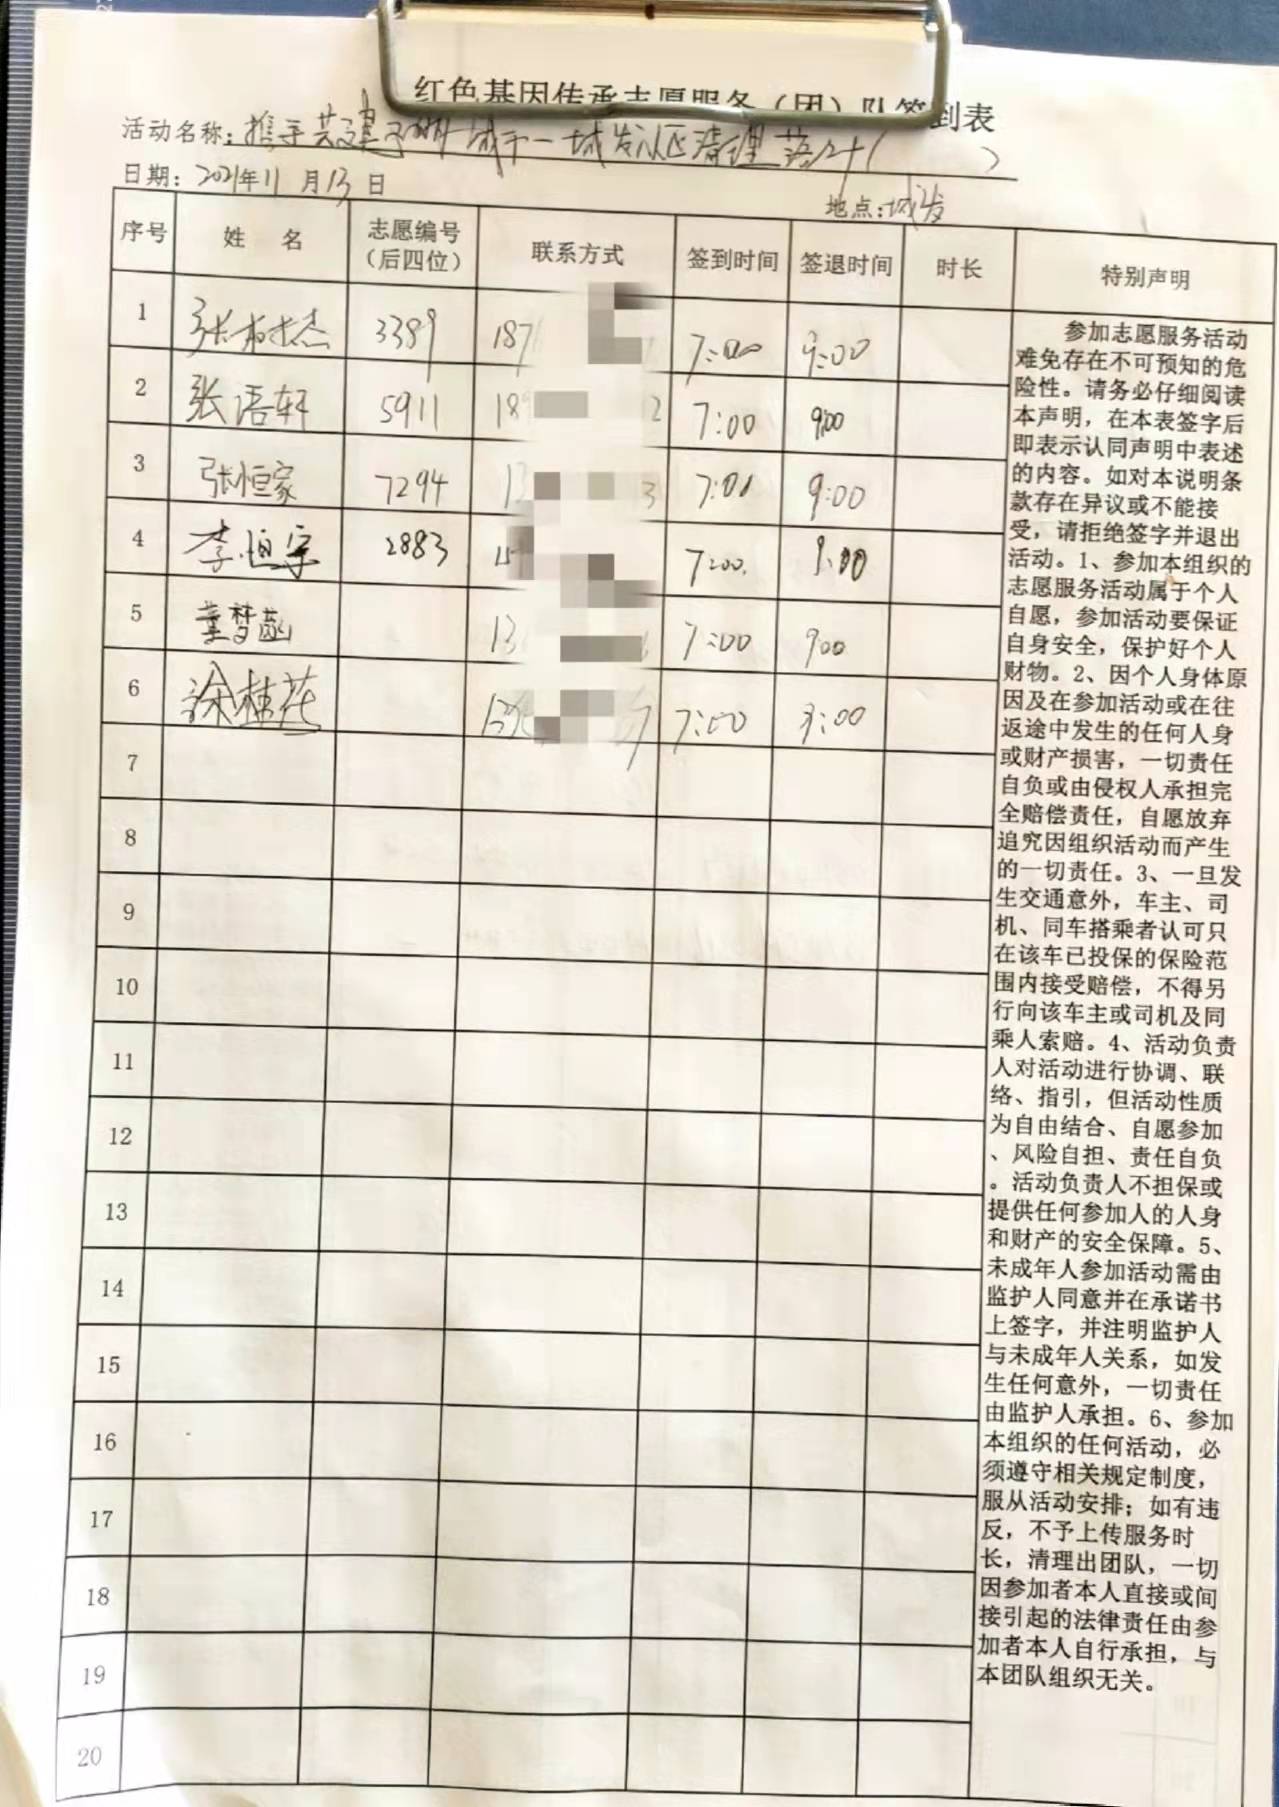 红色基因传承志愿服务（团）队签到表
活动名称：携手共建 城市一城发社区清理落叶（ ）
日期：2021年11月13日
地点：城发
序号 姓 名 志愿编号（后四位） 联系方式 签到时间 签退时间 时长 特别声明
1 3389 187 7:00 9:00
2 张语轩 5911 18 2 7:00 9:00
3 张恒家 7294 13 3 7:00 9:00
4 李恒宇 2883 15 7:00 9:00
5 董梦菡 13 7:00 9:00
6 徐桂花 13 7:00 9:00
7
8
9
10
11
12
13
14
15
16
17
18
19
20
参加志愿服务活动
难免存在不可预知的危
险性。请务必仔细阅读
本声明，在本表签字后
即表示认同声明中表述
的内容。如对本说明条
款存在异议或不能接
受，请拒绝签字并退出
活动。1、参加本组织的
志愿服务活动属于个人
自愿，参加活动要保证
自身安全，保护好个人
财物。2、因个人身体原
因及在参加活动或在往
返途中发生的任何人身
或财产损害，一切责任
自负或由侵权人承担完
全赔偿责任，自愿放弃
追究因组织活动而产生
的一切责任。3、一旦发
生交通意外，车主、司
机、同车搭乘者认可只
在该车已投保的保险范
围内接受赔偿，不得另
行向该车主或司机及同
乘人索赔。4、活动负责
人对活动进行协调、联
络、指引，但活动性质
为自由结合、自愿参加
、风险自担、责任自负
。活动负责人不担保或
提供任何参加人的人身
和财产的安全保障。5、
未成年人参加活动需由
监护人同意并在承诺书
上签字，并注明监护人
与未成年人关系，如发
生任何意外，一切责任
由监护人承担。6、参加
本组织的任何活动，必
须遵守相关规定制度，
服从活动安排；如有违
反，不予上传服务时
长，清理出团队，一切
因参加者本人直接或间
接引起的法律责任由参
加者本人自行承担，与
本团队组织无关。